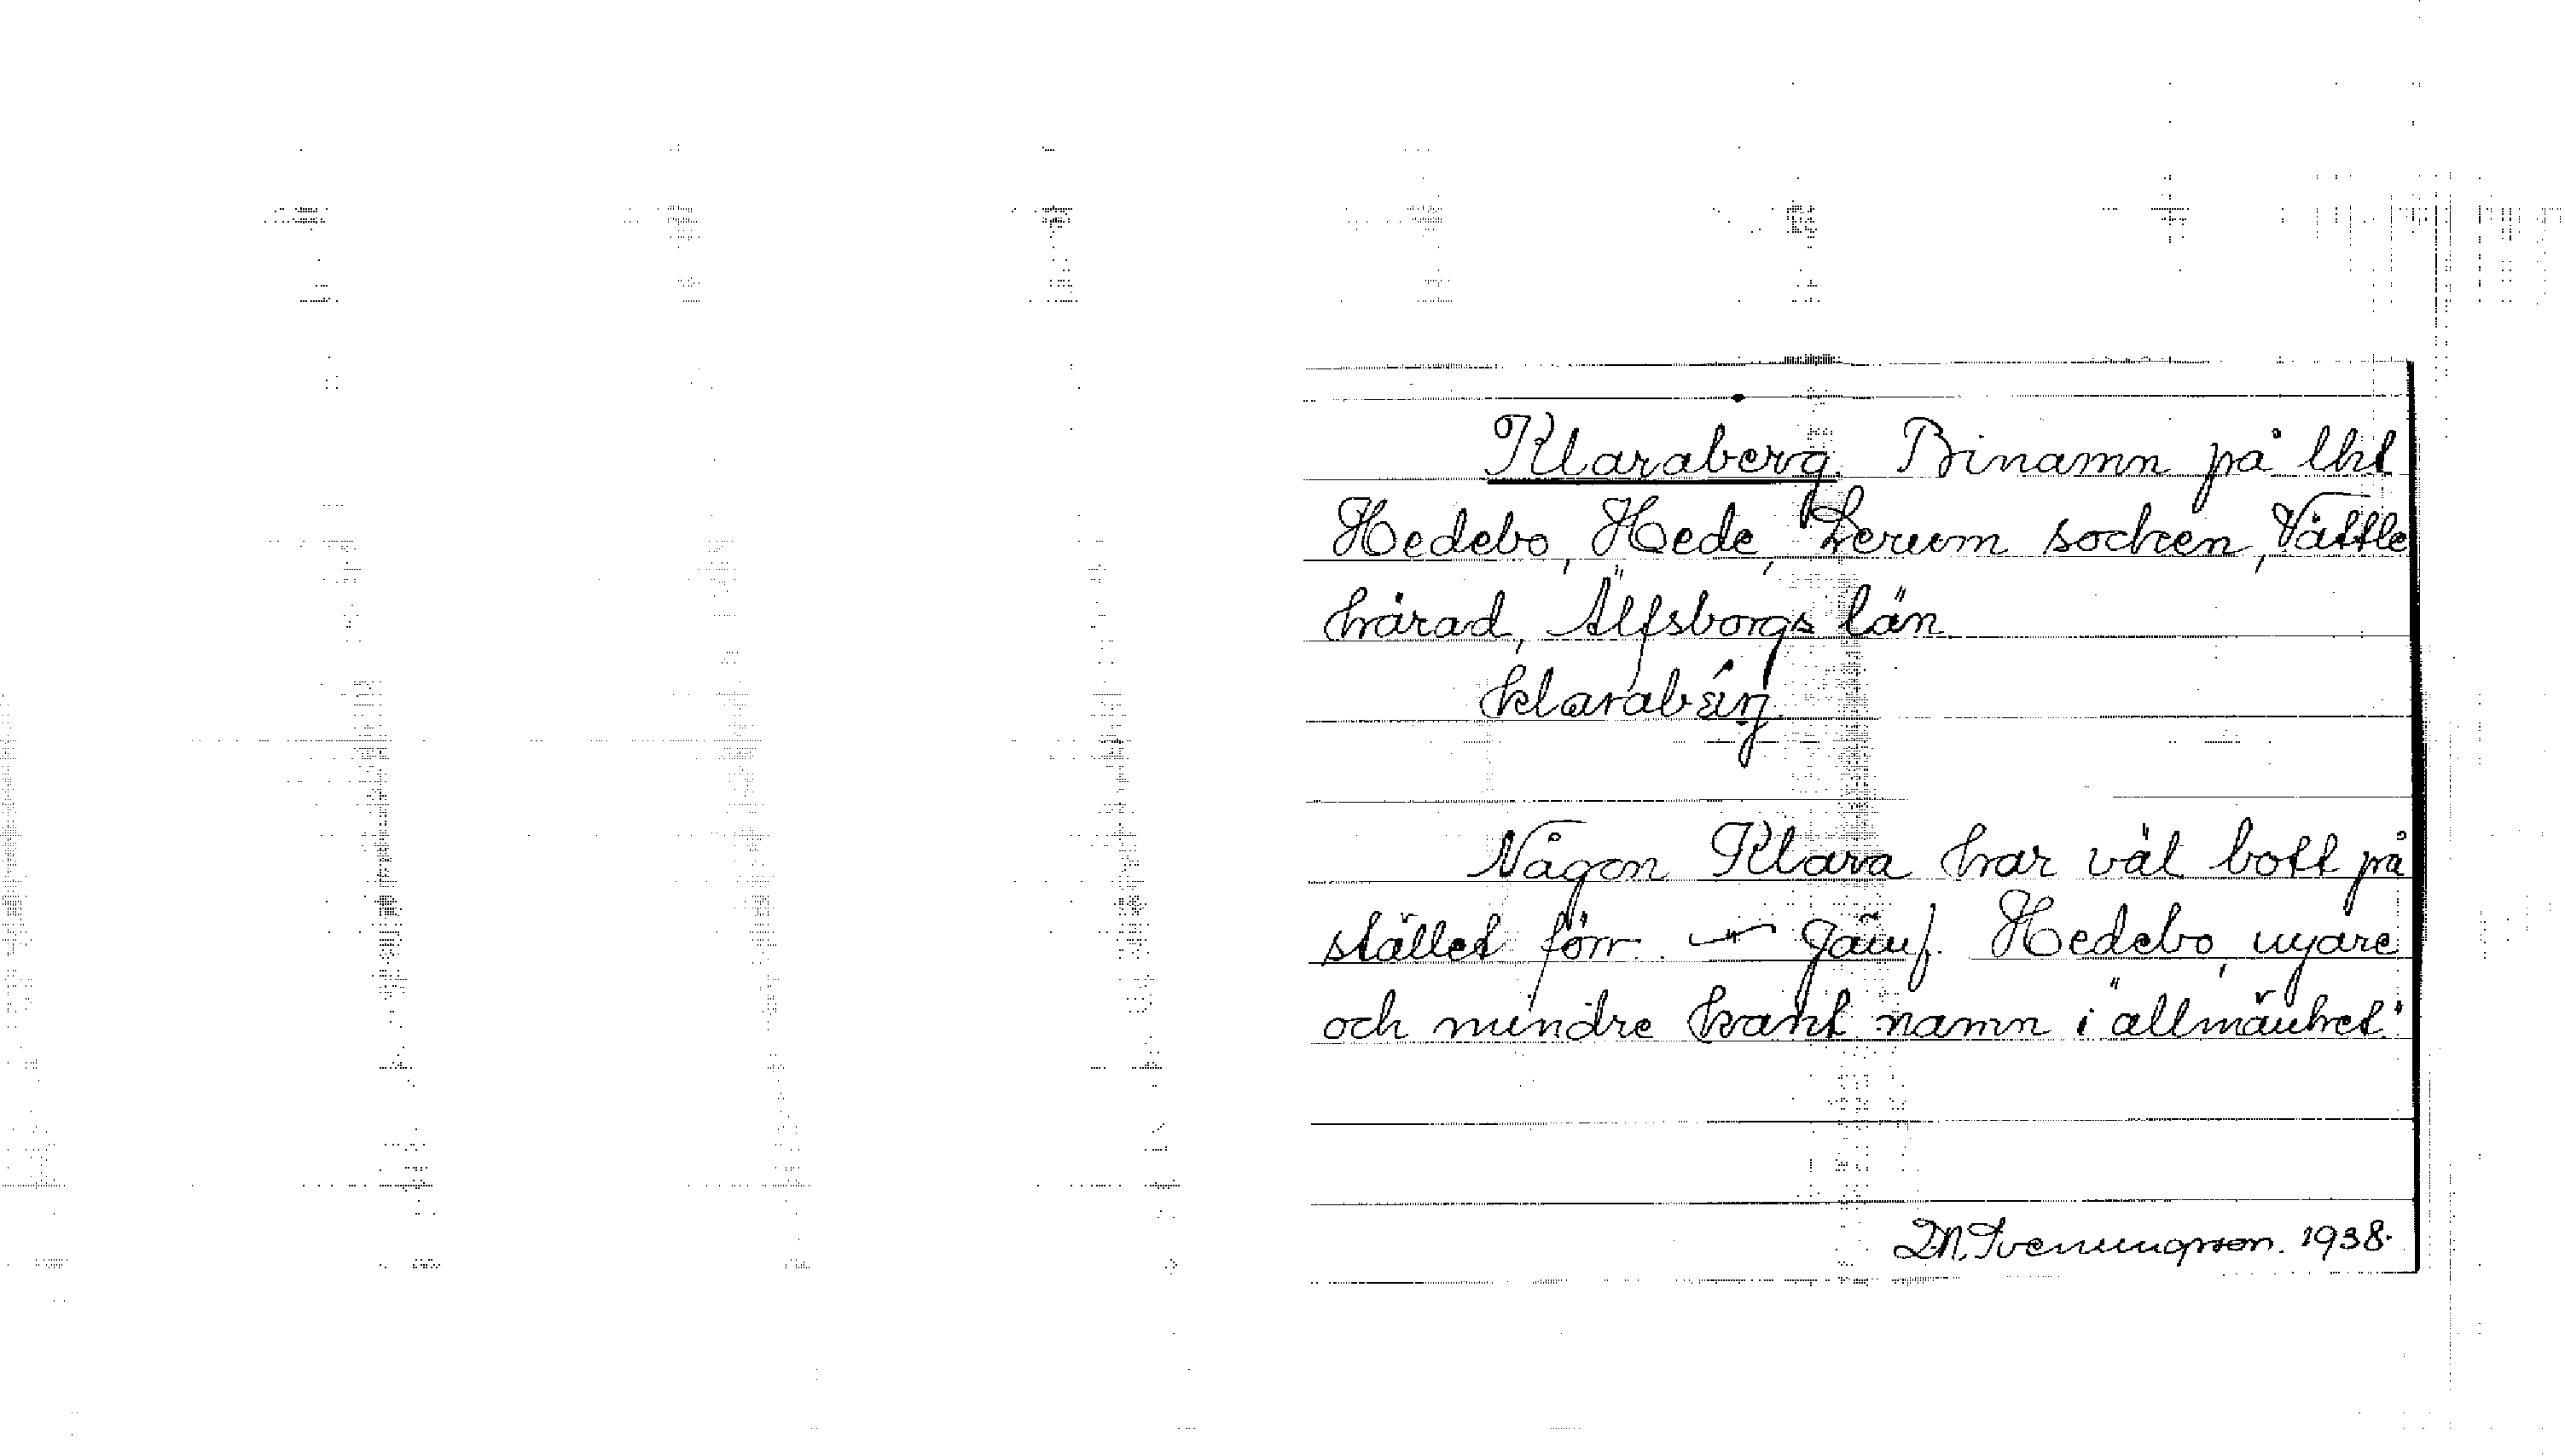 Klaraberg. Binamn på lht
Hedebo, Hede, Lerum socken, Vättle
härad, Älfsborgs län
Någon Klara har väl bott på
stället förr. — Jämf. Hedebo, nyare
och mindre känt namn i allmänhet.
D.N. Svenungsson. 1938.